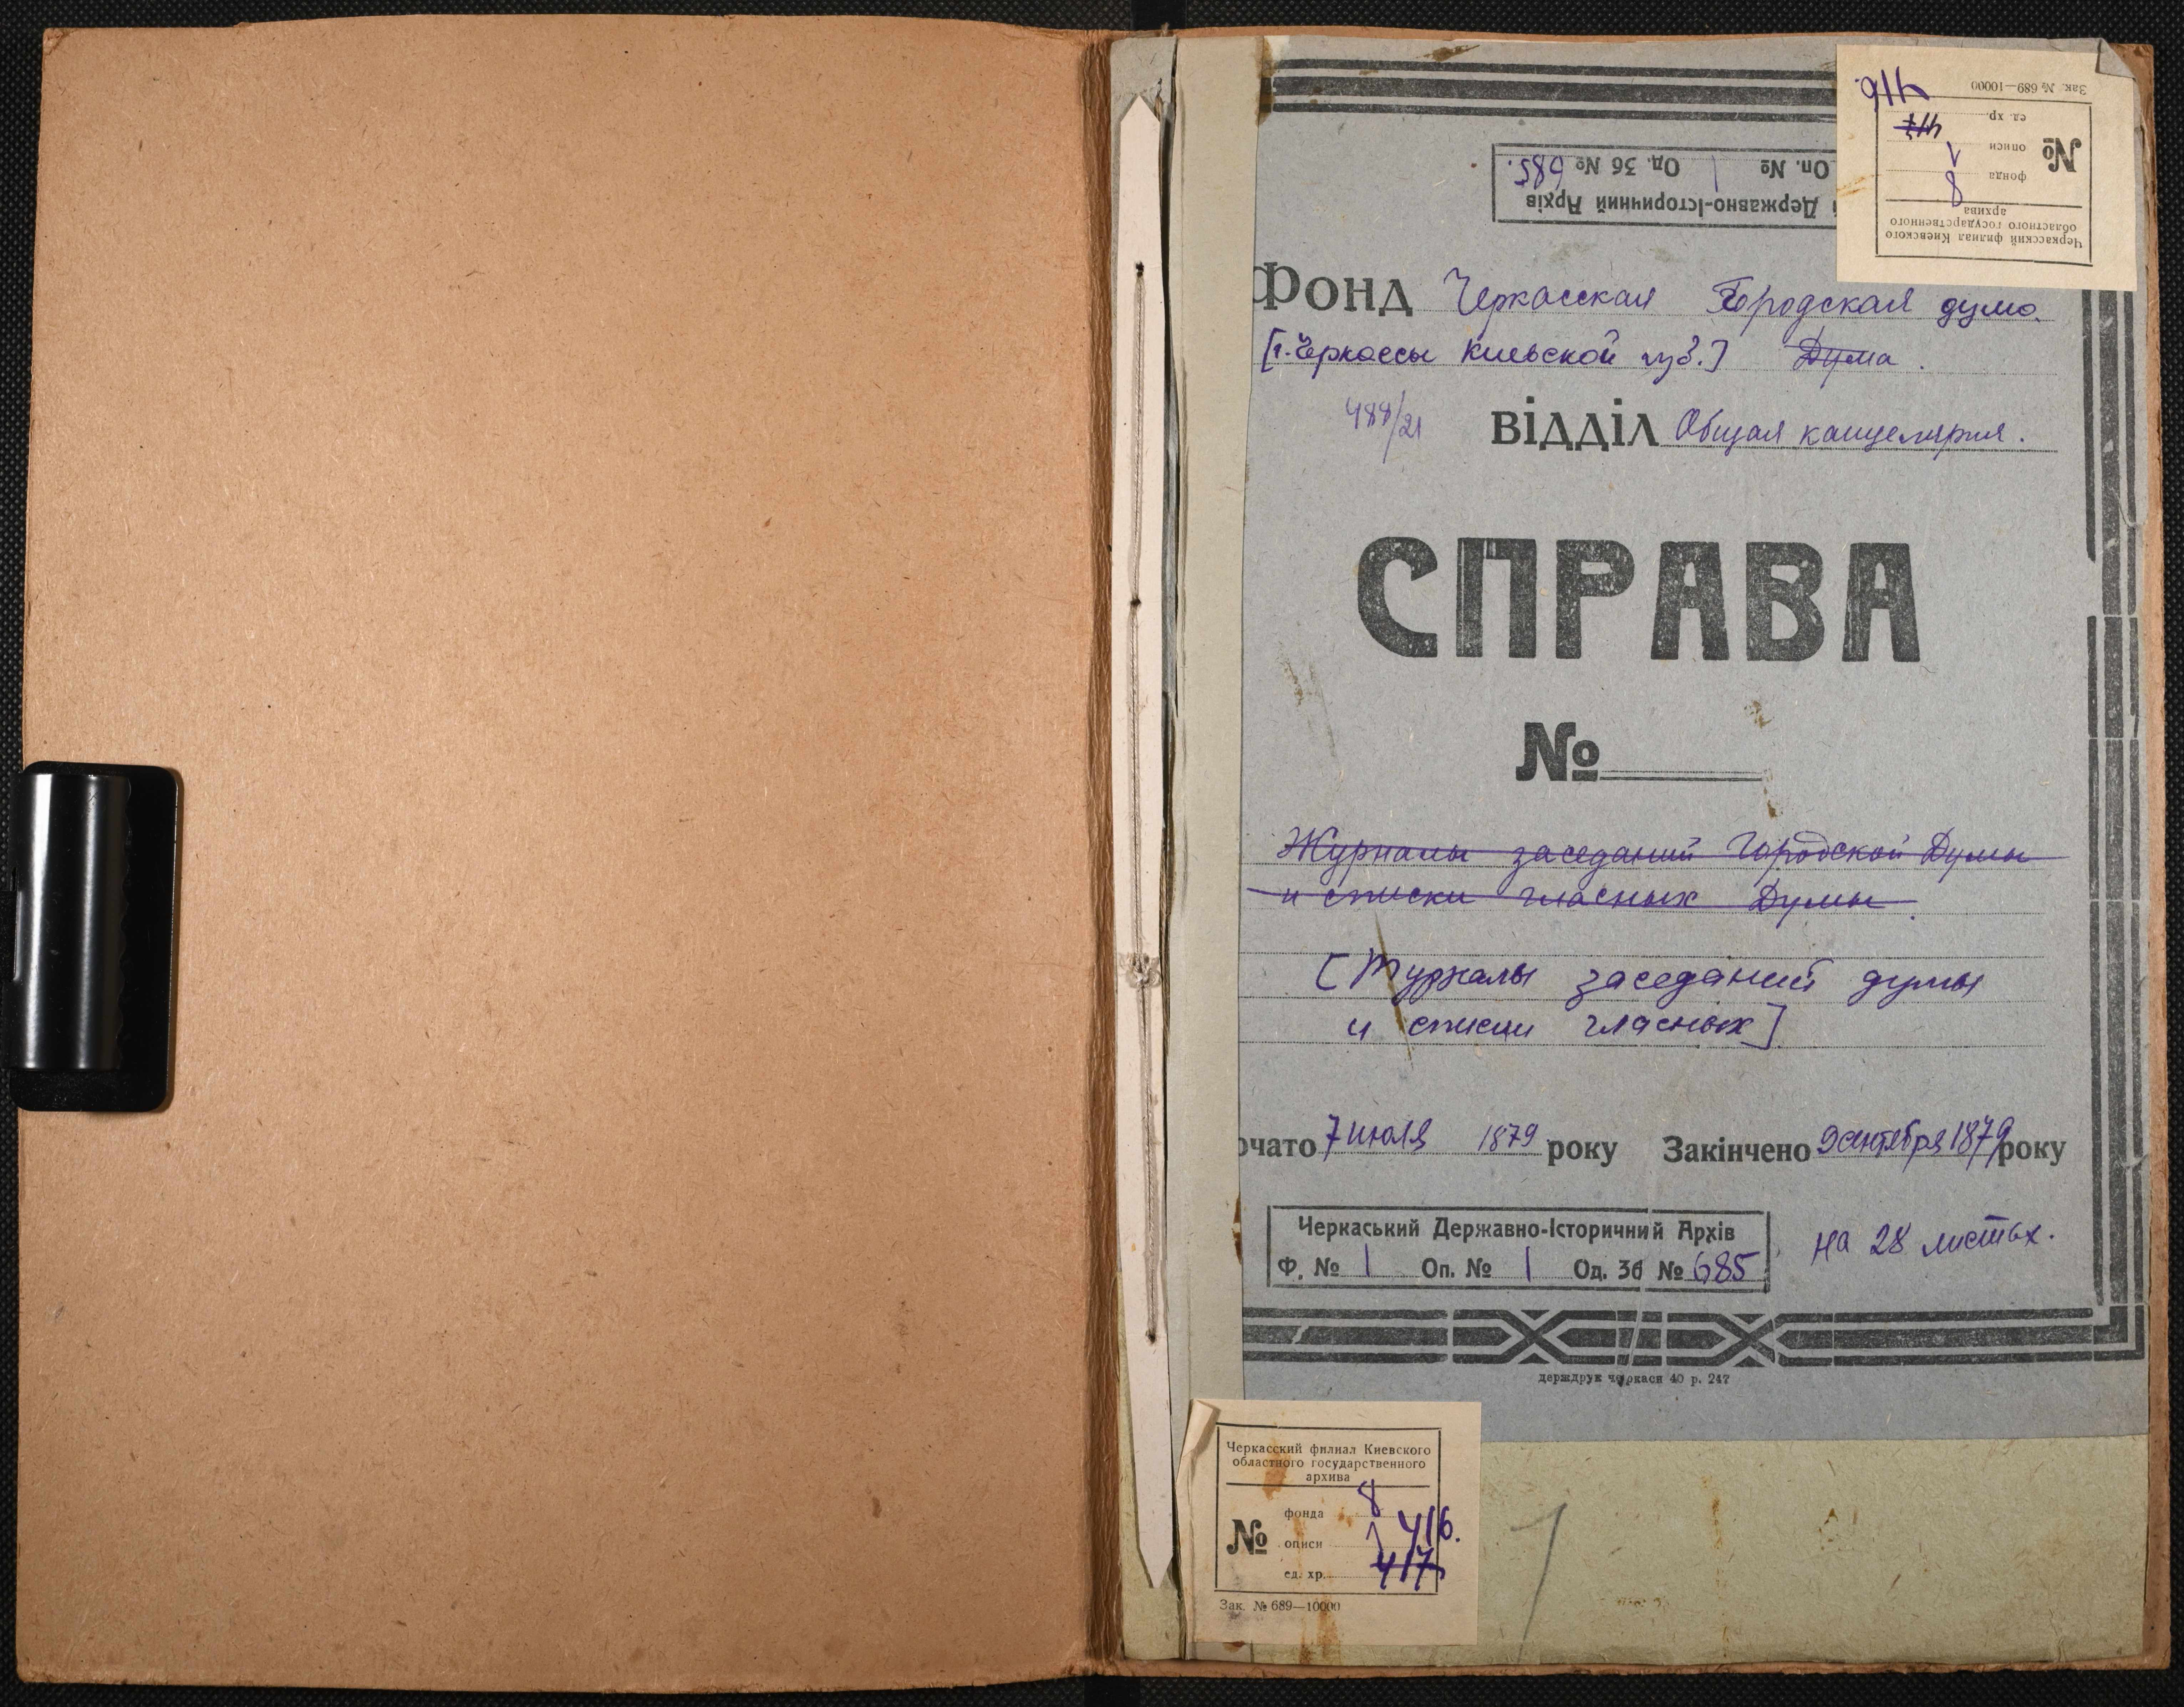 Зак. № 689—10000
416.
Черкасский филиал Киевского
областного государственного
архива
№
фонда 8
описи 1
ед. хр. 417
Державно-Історичний Архів
Оп. № 1 Од. Зб № 685.
Фонд Черкасская Городская дума.
[г. Черкассы Киевской губ.] Дума.
488/21
ВІДДІЛ Общая канцелярия.
СПРАВА
№
Журналы заседаний Городской Думы
и списки гласных Думы.
[Журналы заседаний думы
и списки гласных]
очато 7 июля 1879 року Закінчено 9 сентября 1879 року
Черкаський Державно-Історичний Архів
Ф. № 1 Оп. № 1 Од. Зб № 685
на 28 листах.
держдрук черкаси 40 р. 247
Черкасский филиал Киевского
областного государственного
архива
№
фонда 8
описи 1 416.
ед. хр. 417
Зак. № 689—10000
1